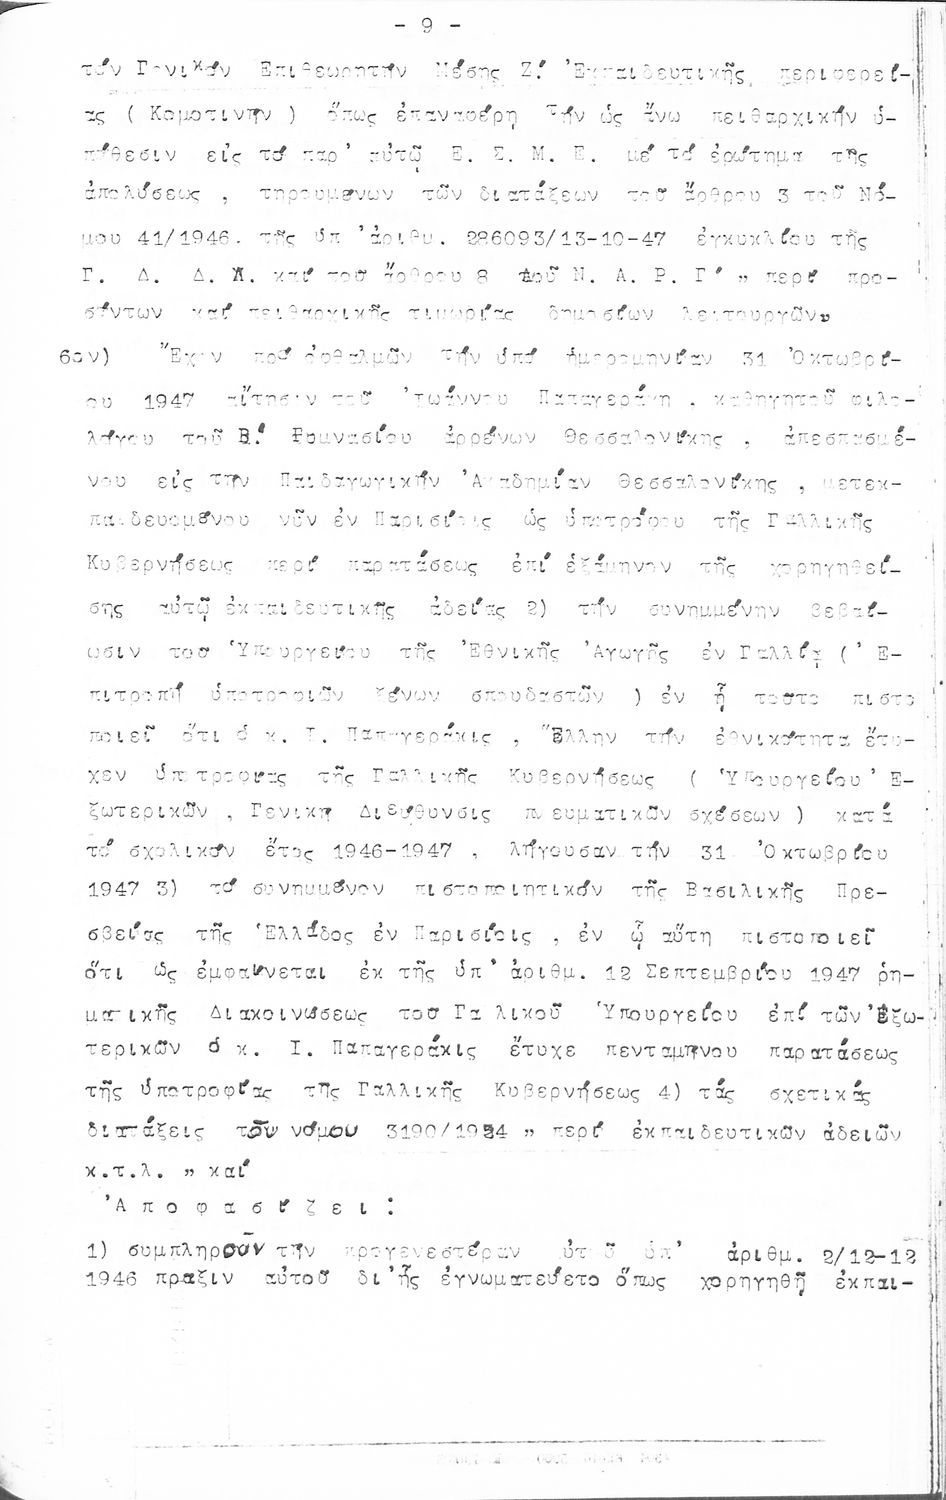 - 9 -
τόν Γενικόν Επιθεωρητήν Μέσης Ζ! Ἐκπαιδευτικῆς περιφερεί-
ας ( Κομοτινήν ) ὅπως ἐπαναφέρη τήν ὡς ἄνω πειθαρχικήν ὑ-
πόθεσιν εἰς τό παρ' αὐτῷ Ε. Σ. Μ. Ε. μέ τό ἐρώτημα τῆς
ἀπολύσεως , τηρουμένων τῶν διατάξεων τοῦ ἄρθρου 3 τοῦ Νό-
μου 41/1946. τῆς ὑπ 'ἀριθμ. 286093/13-10-47 ἐγκυκλίου τῆς
Γ. Δ. Δ. Λ. καί τοῦ ἄρθρου 8 τοῦ Ν. Α. Ρ. Γ' „ περί προ-
σόντων καί πειθαρχικῆς τιμωρίας δημοσίων λειτουργῶν„
6ον) Ἔχον πρό ὀφθαλμῶν τήν ὑπό ἡμερομηνίαν 31 Ὀκτωβρί-
ου 1947 αἴτησιν τοῦ Ἰωάννου Παπαγεράκη , καθηγητοῦ φιλο-
λόγου τοῦ Β! Γυμνασίου ἀρρένων Θεσσαλονίκης , ἀπεσπασμέ-
νου εἰς τήν Παιδαγωγικήν Ἀκαδημίαν Θεσσαλονίκης , μετεκ-
παιδευομένου νῦν ἐν Παρισίοις ὡς ὑποτρόφου τῆς Γαλλικῆς
Κυβερνήσεως περί παρατάσεως ἐπί ἑξάμηνον τῆς χορηγηθεί-
σης αὐτῷ ἐκπαιδευτικῆς ἀδείας 2) τήν συνημμένην βεβαί-
ωσιν τοῦ Ὑπουργείου τῆς Ἐθνικῆς Ἀγωγῆς ἐν Γαλλίᾳ (' Ε-
πιτροπή ὑποτροφιῶν ξένων σπουδαστῶν ) ἐν ᾗ τοῦτο πιστο
ποιεῖ ὅτι ὁ κ. Ι. Παπαγεράκις , Ἕλλην τήν ἐθνικότητα ἔτυ-
χεν ὑποτροφίας τῆς Γαλλικῆς Κυβερνήσεως ( Ὑπουργείου' Ε-
ξωτερικῶν , Γενική Διεύθυνσις πνευματικῶν σχέσεων ) κατά
τό σχολικόν ἔτος 1946-1947 , λήγουσαν τήν 31 Ὀκτωβρίου
1947 3) τό συνημμένον πιστοποιητικόν τῆς Βασιλικῆς Πρε-
σβείας τῆς Ἑλλάδος ἐν Παρισίοις , ἐν ᾧ αὕτη πιστοποιεῖ
ὅτι ὡς ἐμφαίνεται ἐκ τῆς ὑπ' ἀριθμ. 12 Σεπτεμβρίου 1947 ῥη-
ματικῆς Διακοινώσεως τοῦ Γα λικοῦ Ὑπουργείου ἐπί τῶν Ἐξω-
τερικῶν ὁ κ. Ι. Παπαγεράκις ἔτυχε πενταμήνου παρατάσεως
τῆς ὑποτροφίας τῆς Γαλλικῆς Κυβερνήσεως 4) τάς σχετικάς
διατάξεις τοῦ νόμου 3190/1924 „ περί ἐκπαιδευτικῶν ἀδειῶν
κ.τ.λ. „ καί
Ἀ π ο φ α σ ί ζ ε ι :
1) συμπληροῦν τήν προγενεστέραν αὐτοῦ ὑπ' ἀριθμ. 2/12-12
1946 πρᾶξιν αὐτοῦ δι'ἧς ἐγνωματεύετο ὅπως χορηγηθῇ ἐκπαι-